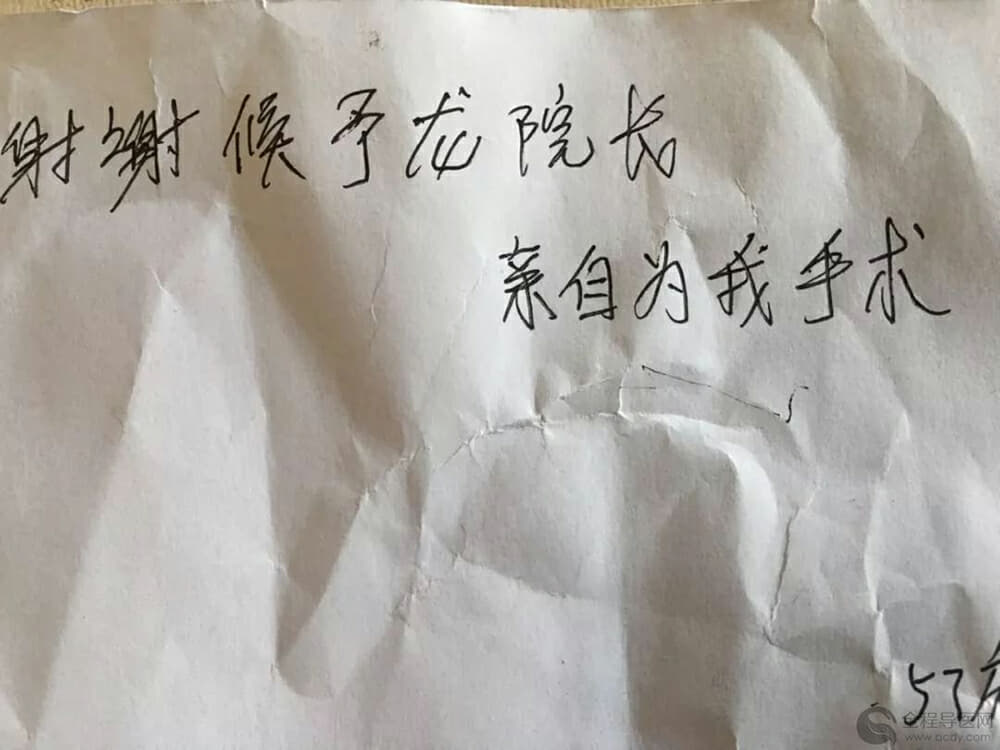 谢谢候予龙院长
亲自为我手术
57床
全程导医网
www.qcdy.com